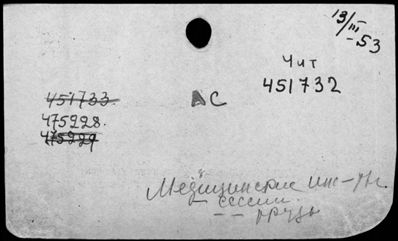 13/III-53
Чит
451732
451733.
475228.
475229
АС
Медицинские инс-ты.
сессии.
-- труды